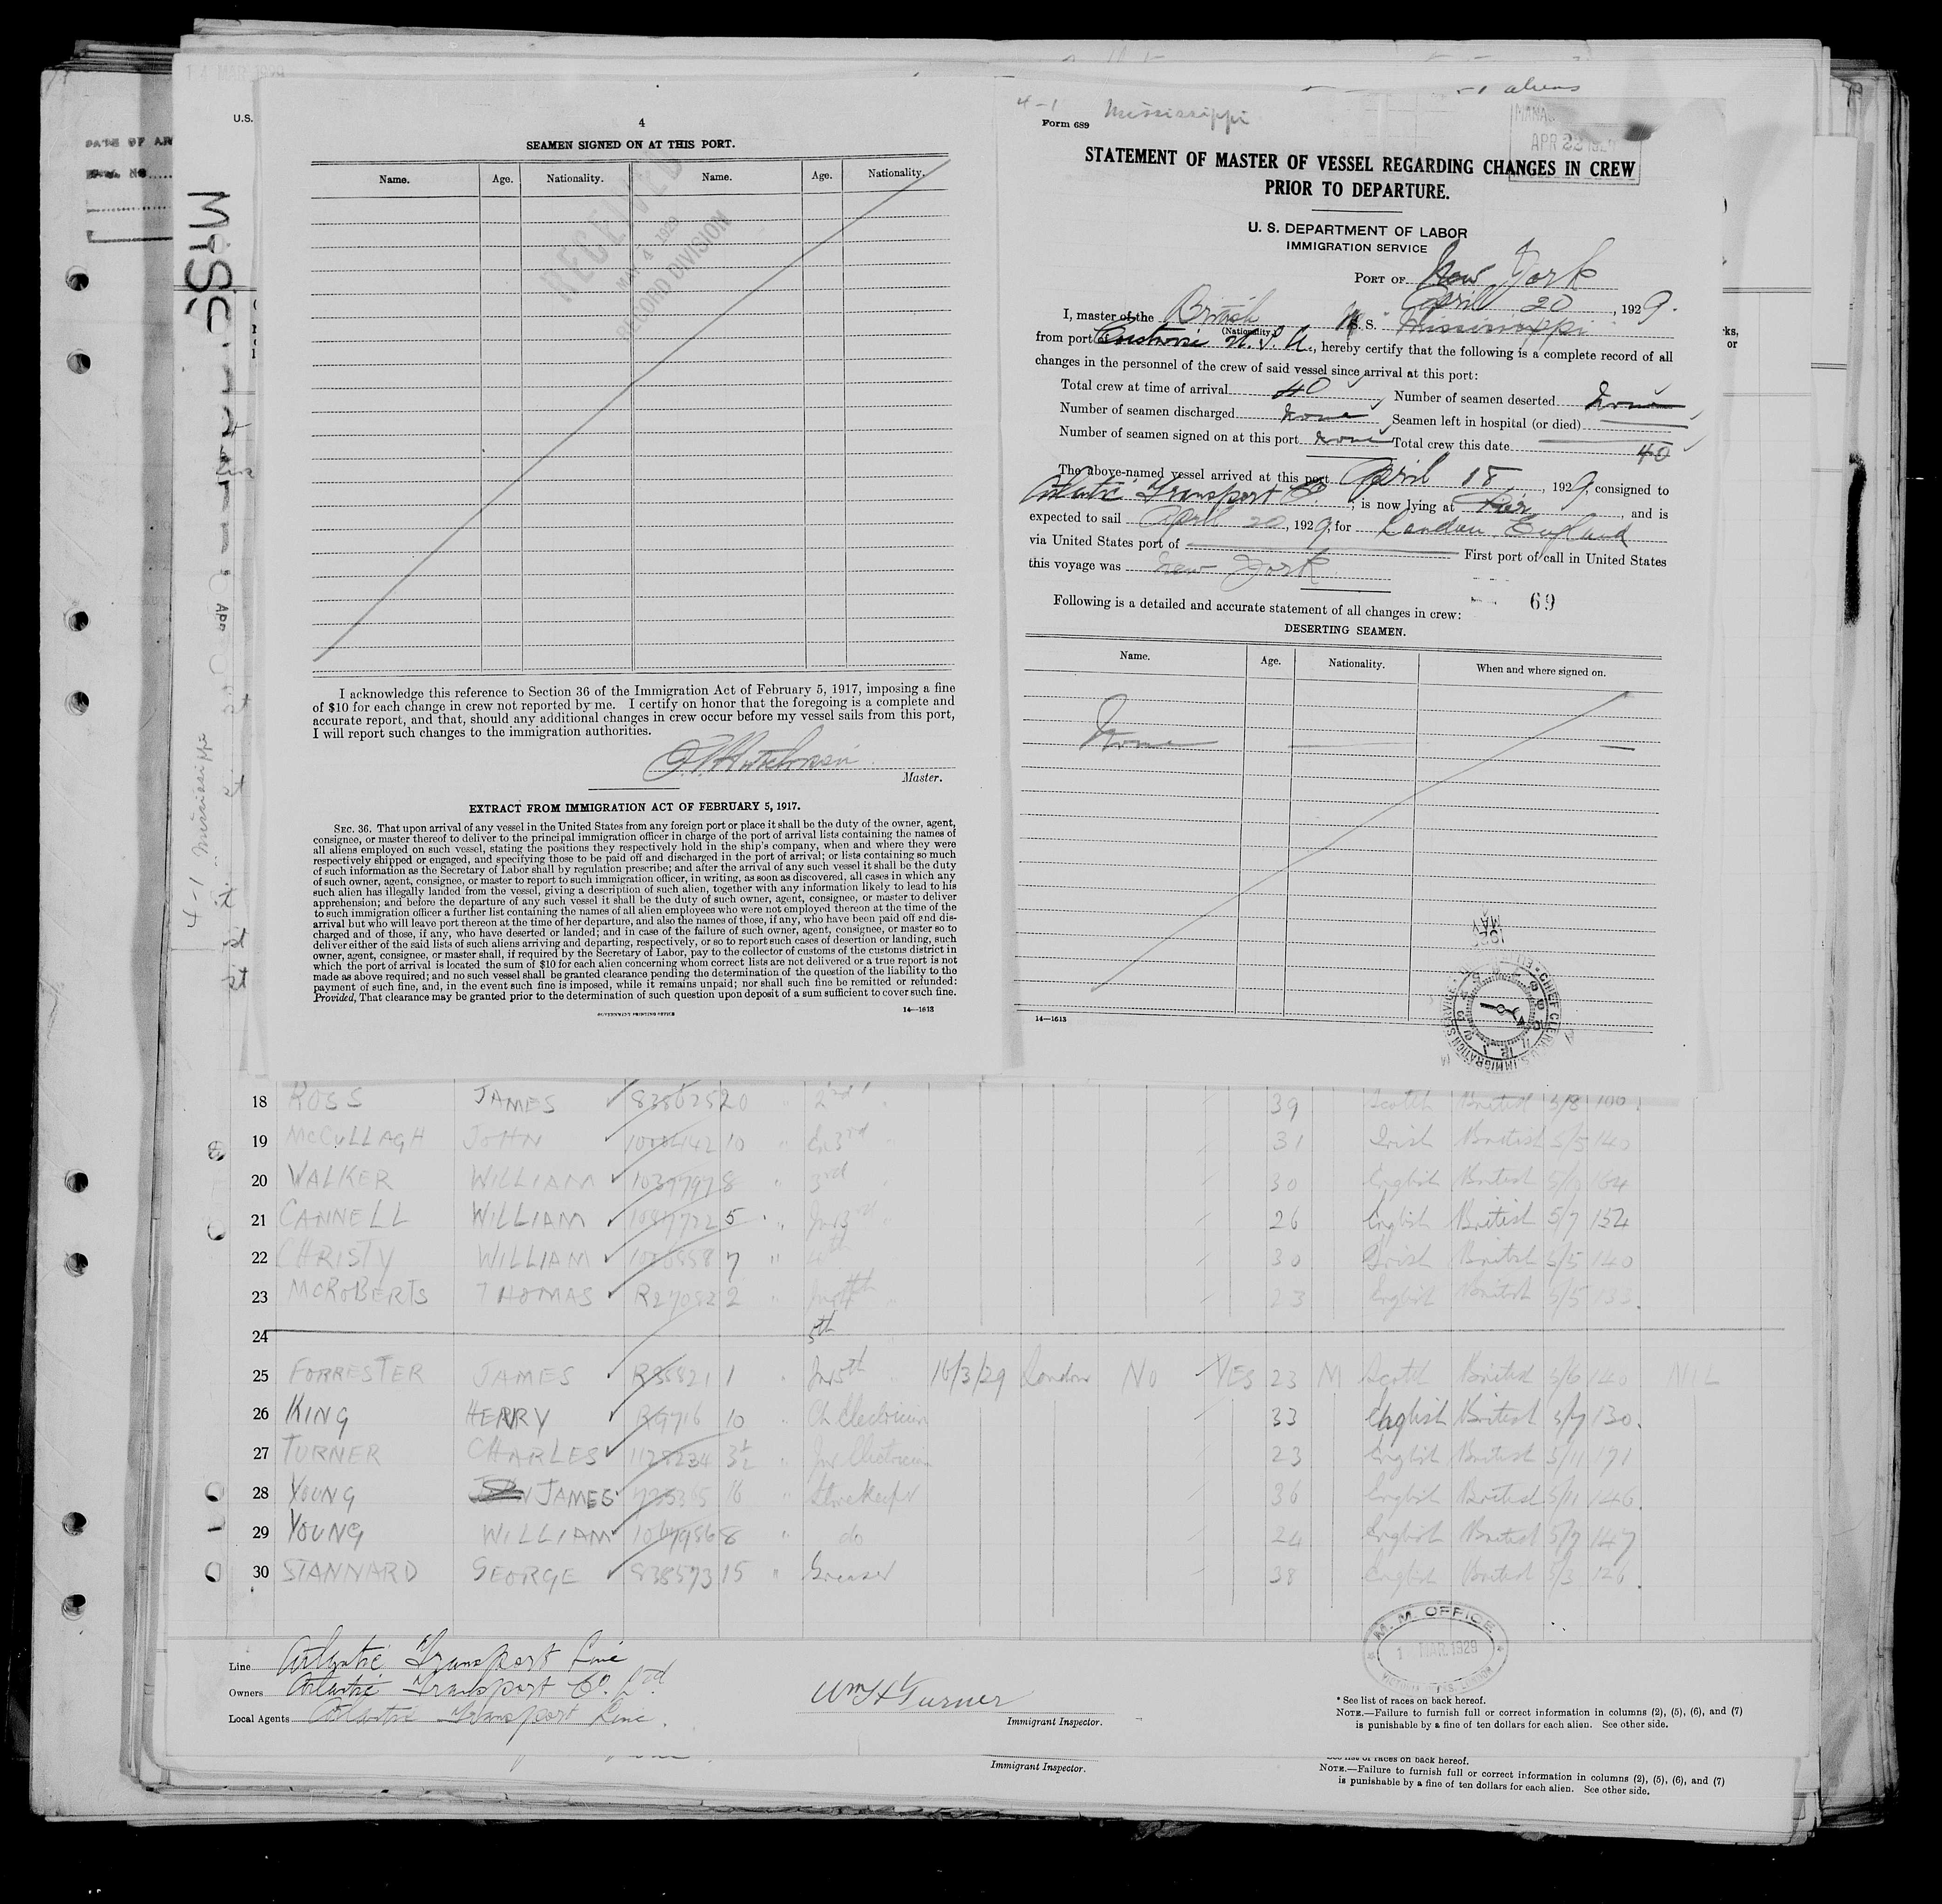 14 MAR 1929
U.S.
4
SEAMEN SIGNED ON AT THIS PORT.
Name. Age. Nationality. Name. Age. Nationality.
RECEIVED
MAY 4 1929
RECORD DIVISION
I acknowledge this reference to Section 36 of the Immigration Act of February 5, 1917, imposing a fine
of $10 for each change in crew not reported by me. I certify on honor that the foregoing is a complete and
accurate report, and that, should any additional changes in crew occur before my vessel sails from this port,
I will report such changes to the immigration authorities.
Master.
EXTRACT FROM IMMIGRATION ACT OF FEBRUARY 5, 1917.
SEC. 36. That upon arrival of any vessel in the United States from any foreign port or place it shall be the duty of the owner, agent,
consignee, or master thereof to deliver to the principal immigration officer in charge of the port of arrival lists containing the names of
all aliens employed on such vessel, stating the positions they respectively hold in the ship's company, when and where they were
respectively shipped or engaged, and specifying those to be paid off and discharged in the port of arrival; or lists containing so much
of such information as the Secretary of Labor shall by regulation prescribe; and after the arrival of any such vessel it shall be the duty
of such owner, agent, consignee, or master to report to such immigration officer, in writing, as soon as discovered, all cases in which any
such alien has illegally landed from the vessel, giving a description of such alien, together with any information likely to lead to his
apprehension; and before the departure of any such vessel it shall be the duty of such owner, agent, consignee, or master to deliver
to such immigration officer a further list containing the names of all alien employees who were not employed thereon at the time of the
arrival but who will leave port thereon at the time of her departure, and also the names of those, if any, who have been paid off and dis-
charged and of those, if any, who have deserted or landed; and in case of the failure of such owner, agent, consignee, or master so to
deliver either of the said lists of such aliens arriving and departing, respectively, or so to report such cases of desertion or landing, such
owner, agent, consignee, or master shall, if required by the Secretary of Labor, pay to the collector of customs of the customs district in
which the port of arrival is located the sum of $10 for each alien concerning whom correct lists are not delivered or a true report is not
made as above required; and no such vessel shall be granted clearance pending the determination of the question of the liability to the
payment of such fine, and, in the event such fine is imposed, while it remains unpaid; nor shall such fine be remitted or refunded:
Provided, That clearance may be granted prior to the determination of such question upon deposit of a sum sufficient to cover such fine.
GOVERNMENT PRINTING OFFICE 14—1613
-1 aliens
4-1 Mississippi
Form 689
APR 22 1929
STATEMENT OF MASTER OF VESSEL REGARDING CHANGES IN CREW
PRIOR TO DEPARTURE.
U. S. DEPARTMENT OF LABOR
IMMIGRATION SERVICE
PORT OF New York
April 20, 1929.
I, master of the British (Nationality) S. S. Mississippi
from port U.S.A., hereby certify that the following is a complete record of all
changes in the personnel of the crew of said vessel since arrival at this port:
Total crew at time of arrival 40 Number of seamen deserted None
Number of seamen discharged None Seamen left in hospital (or died)
Number of seamen signed on at this port None Total crew this date 40
The above-named vessel arrived at this port April 18, 1929, consigned to
Atlantic Transport Co., is now lying at Pier, and is
expected to sail April 20, 1929, for London England
via United States port of First port of call in United States
this voyage was New York
69
Following is a detailed and accurate statement of all changes in crew:
DESERTING SEAMEN.
Name. Age. Nationality. When and where signed on.
None
14—1613
4-1 Mississippi
18 ROSS JAMES 20 2nd 39 Scotch British 5/8
19 McCULLAGH JOHN 10 3rd 31 Irish British 5/5 140
20 WALKER WILLIAM 8 3rd 30 English British 5/10 164
21 CANNELL WILLIAM 5 Jnr 3rd 26 English British 5/7 152
22 CHRISTY WILLIAM 7 4th 30 Irish British 5/5 140
23 McROBERTS THOMAS R270822 2 Jnr 4th 23 English British 5/5
24 5th
25 FORRESTER JAMES R35821 1 Jnr 5th 16/3/29 London No YES 23 M Scotch British 5/6 140 NIL
26 KING HENRY R9716 10 Ch Electrician 33 English British 5/7 130.
27 TURNER CHARLES 1128234 3½ Jnr Electrician 23 English British 5/11 171
28 YOUNG JAMES 16 Storekeeper 36 English British 5/11 146.
29 YOUNG WILLIAM 1049986 8 do 24 English British 5/7 147
30 STANNARD GEORGE 838573 15 Greaser 38 English British 5/3 126.
M. M. OFFICE
1 MAR.1929
Line Atlantic Transport Line
Owners Atlantic Transport Co. Ltd
Local Agents Atlantic Transport Line.
Wm H Turner
Immigrant Inspector.
* See list of races on back hereof.
NOTE.—Failure to furnish full or correct information in columns (2), (5), (6), and (7)
is punishable by a fine of ten dollars for each alien. See other side.
Immigrant Inspector.
See list of races on back hereof.
NOTE.—Failure to furnish full or correct information in columns (2), (5), (6), and (7)
is punishable by a fine of ten dollars for each alien. See other side.